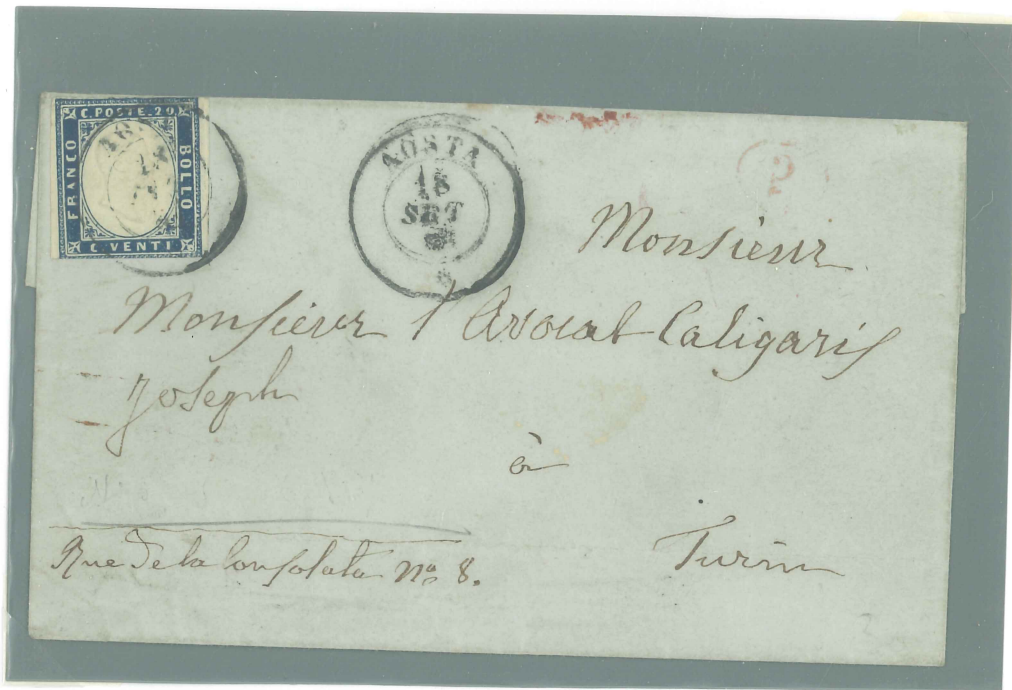 C. POSTE. 20
FRANCO
BOLLO
C. VENTI
AOSTA
18
SET
2
Monsieur
Monsieur l'Avocat Caligaris
Joseph
à
Turin
Rue de la Consolata No 8.